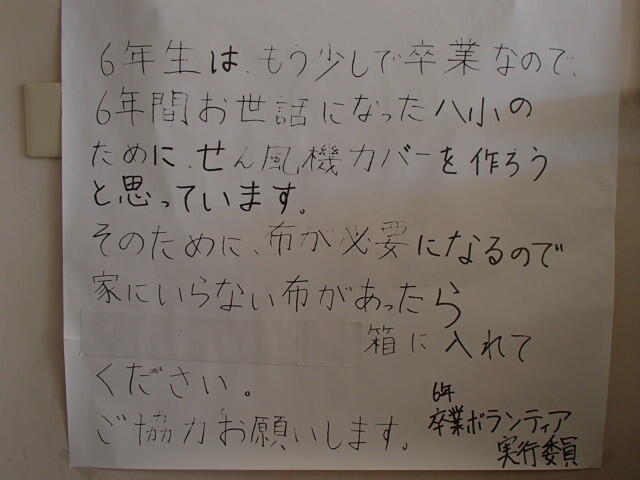 6年生は、もう少しで卒業なので、
6年間お世話になった八小の
ために、せん風機カバーを作ろう
と思っています。
そのために、布が必要になるので
家にいらない布があったら
箱に入れて
ください。
ご協力お願いします。
6年
卒業ボランティア
実行委員